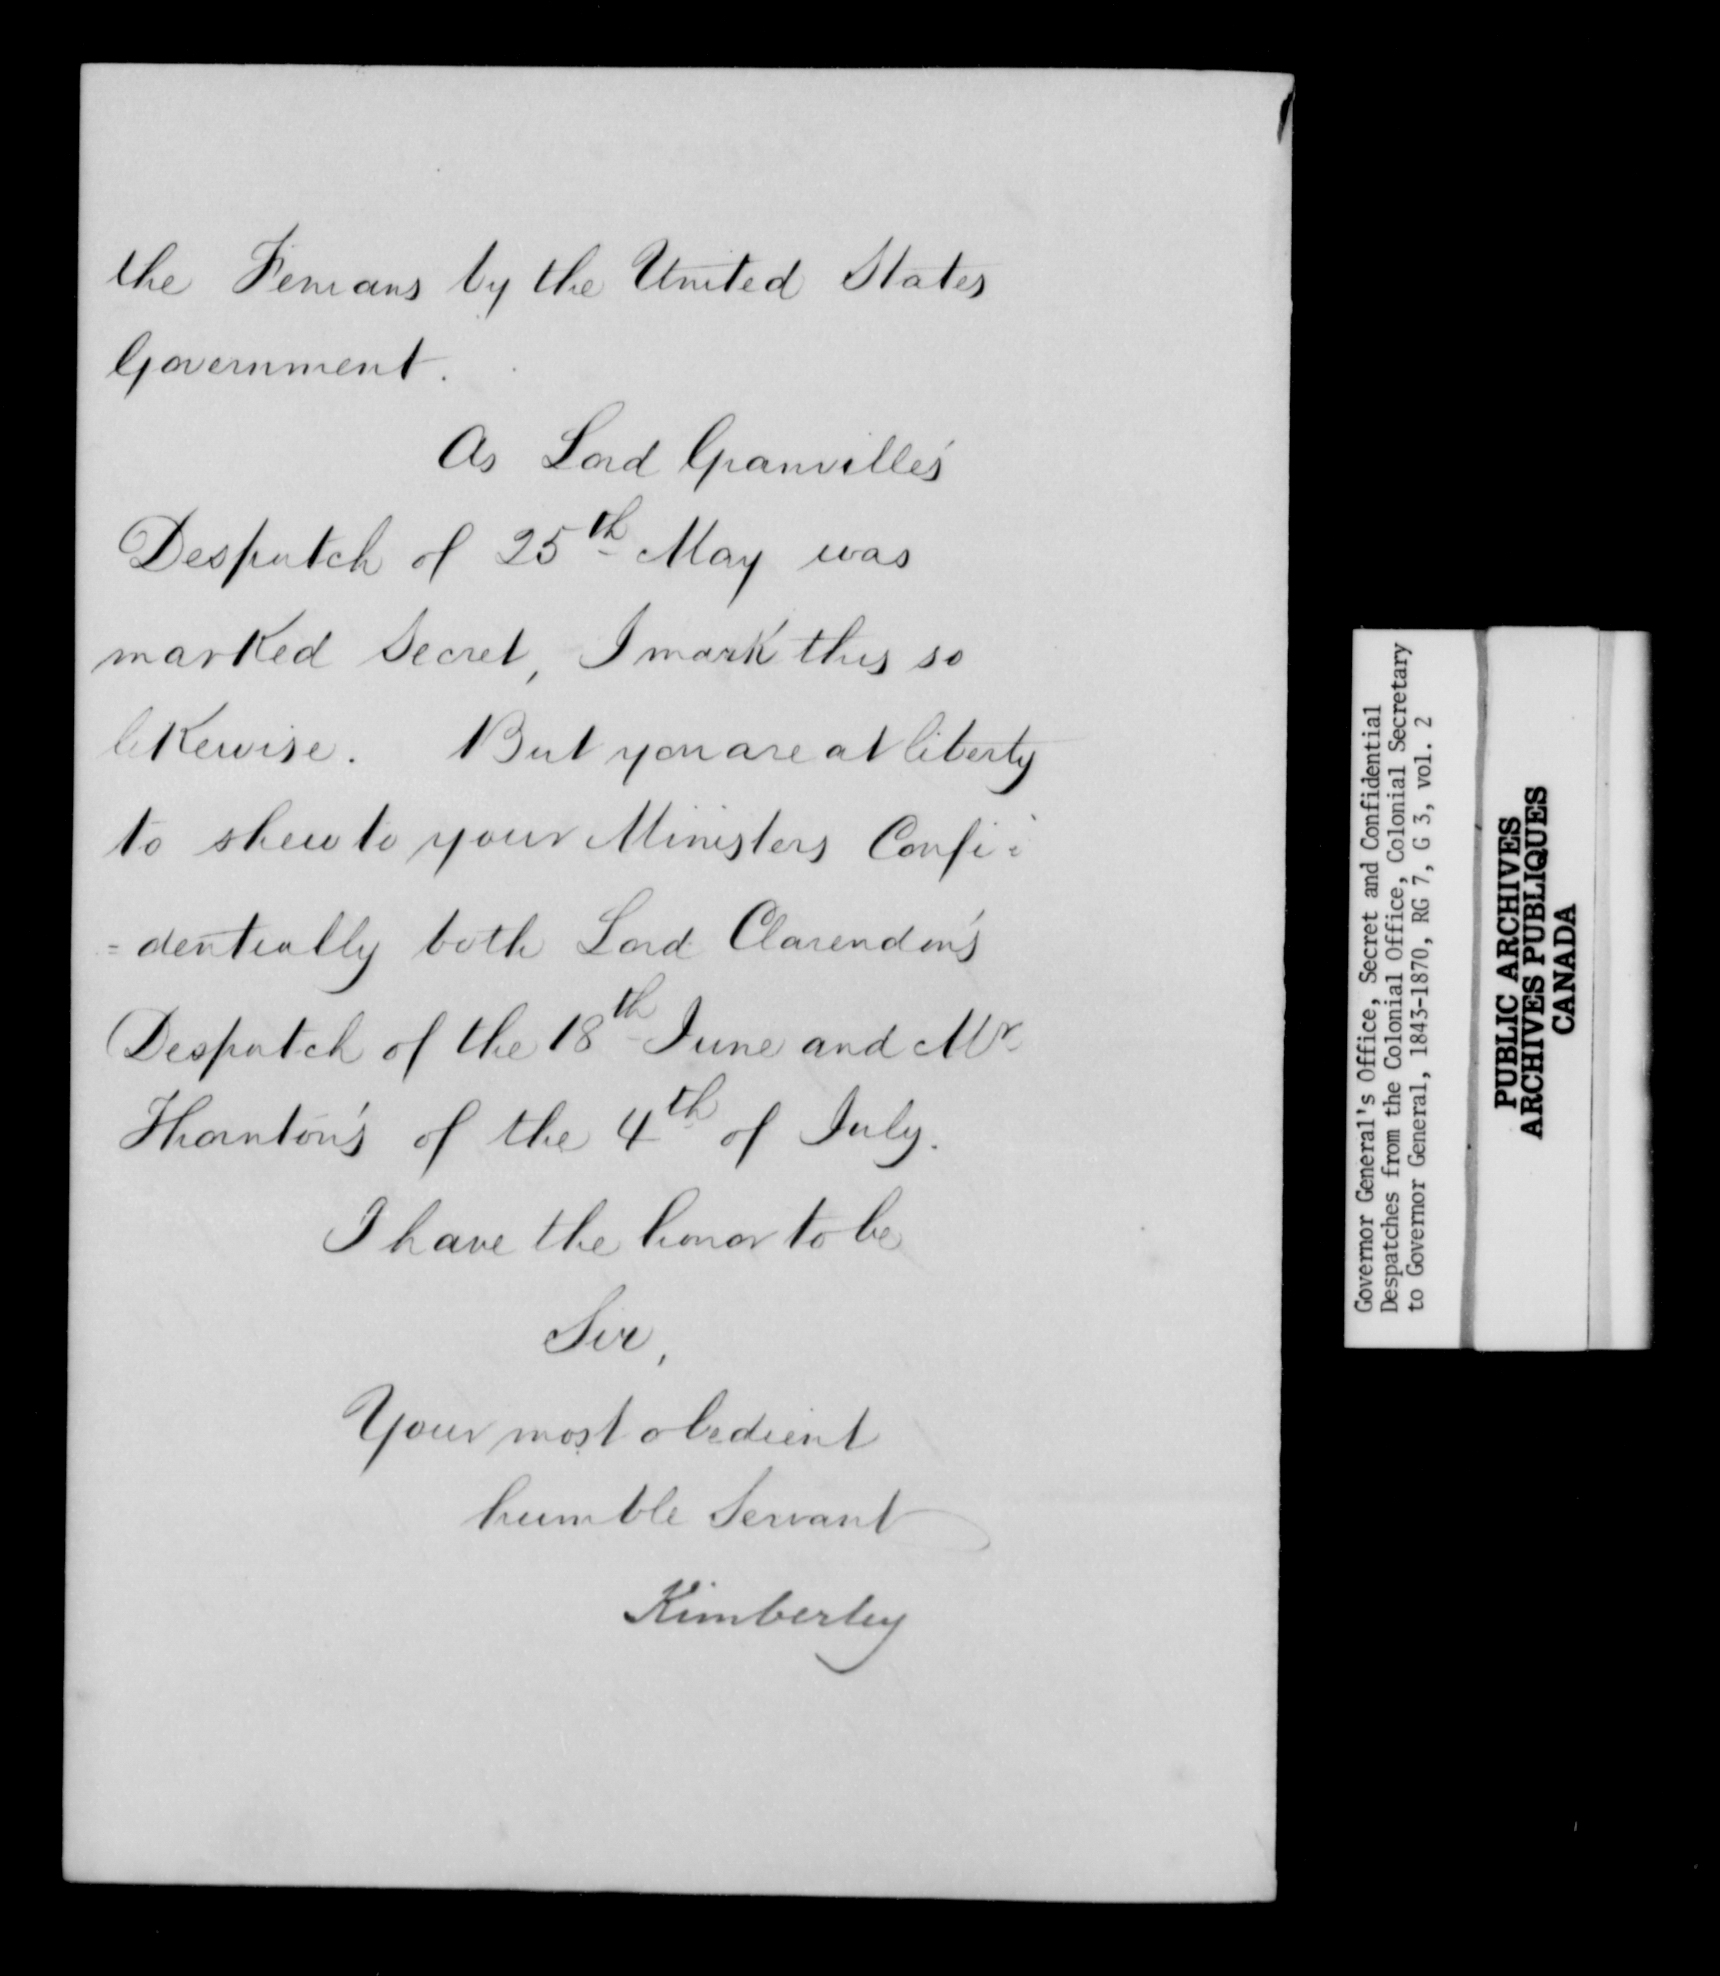 the Fenians by the United States
Government.
As Lord Granville's
Despatch of 25th May was
marked Secret, I mark this so
likewise. But you are at liberty
to shew to your Ministers Confi=
=dentially both Lord Clarendon's
Despatch of the 18th June and Mr
Thornton's of the 4th of July.
I have the honor to be
Sir,
Your most obedient
humble Servant
Kimberley
Governor General's Office, Secret and Confidential
Despatches from the Colonial Office, Colonial Secretary
to Governor General, 1843-1870, RG 7, G 3, vol. 2
PUBLIC ARCHIVES
ARCHIVES PUBLIQUES
CANADA